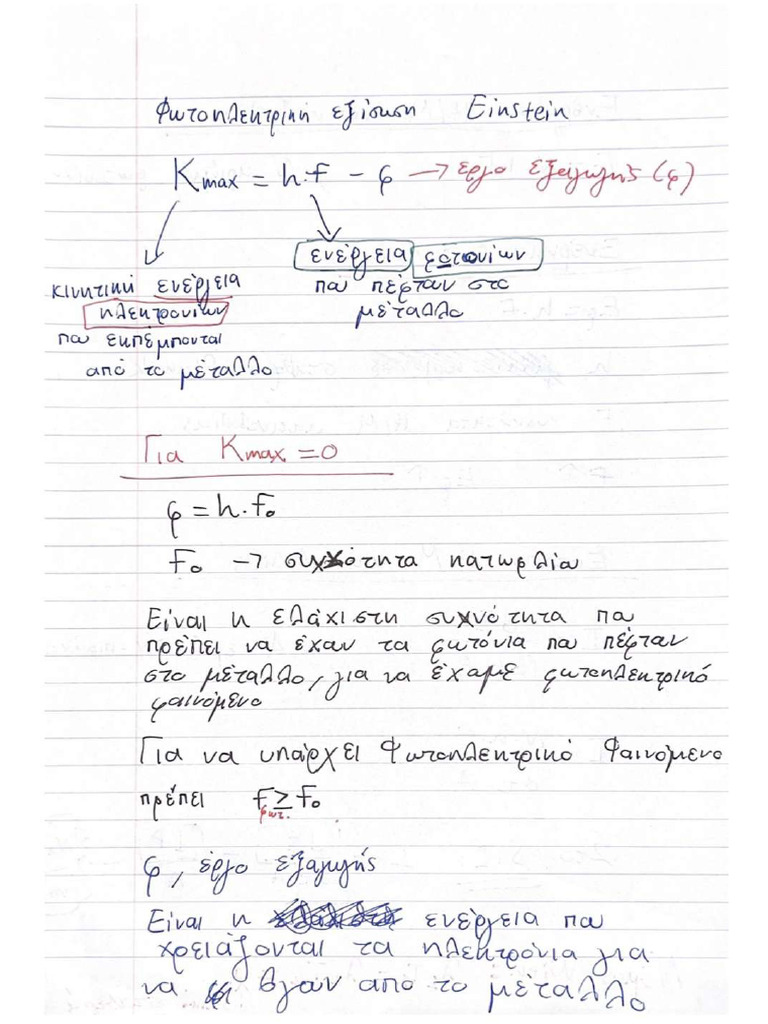 Φωτοηλεκτρική εξίσωση Einstein
Kmax = h.f - φ → έργο εξαγωγής (φ)
ενέργεια φωτονίων
που πέφτουν στο
μέταλλο
κινητική ενέργεια
ηλεκτρονίων
που εκπέμπονται
από το μέταλλο
Για Kmax = 0
φ = h.fo
fo → συχνότητα κατωφλίου
Είναι η ελάχιστη συχνότητα που
πρέπει να έχουν τα φωτόνια που πέφτουν
στο μέταλλο, για να έχουμε φωτοηλεκτρικό
φαινόμενο
Για να υπάρχει Φωτοηλεκτρικό Φαινόμενο
πρέπει f ≥ fo
φωτ.
φ, έργο εξαγωγής
Είναι η ενέργεια που
χρειάζονται τα ηλεκτρόνια για
να βγουν από το μέταλλο